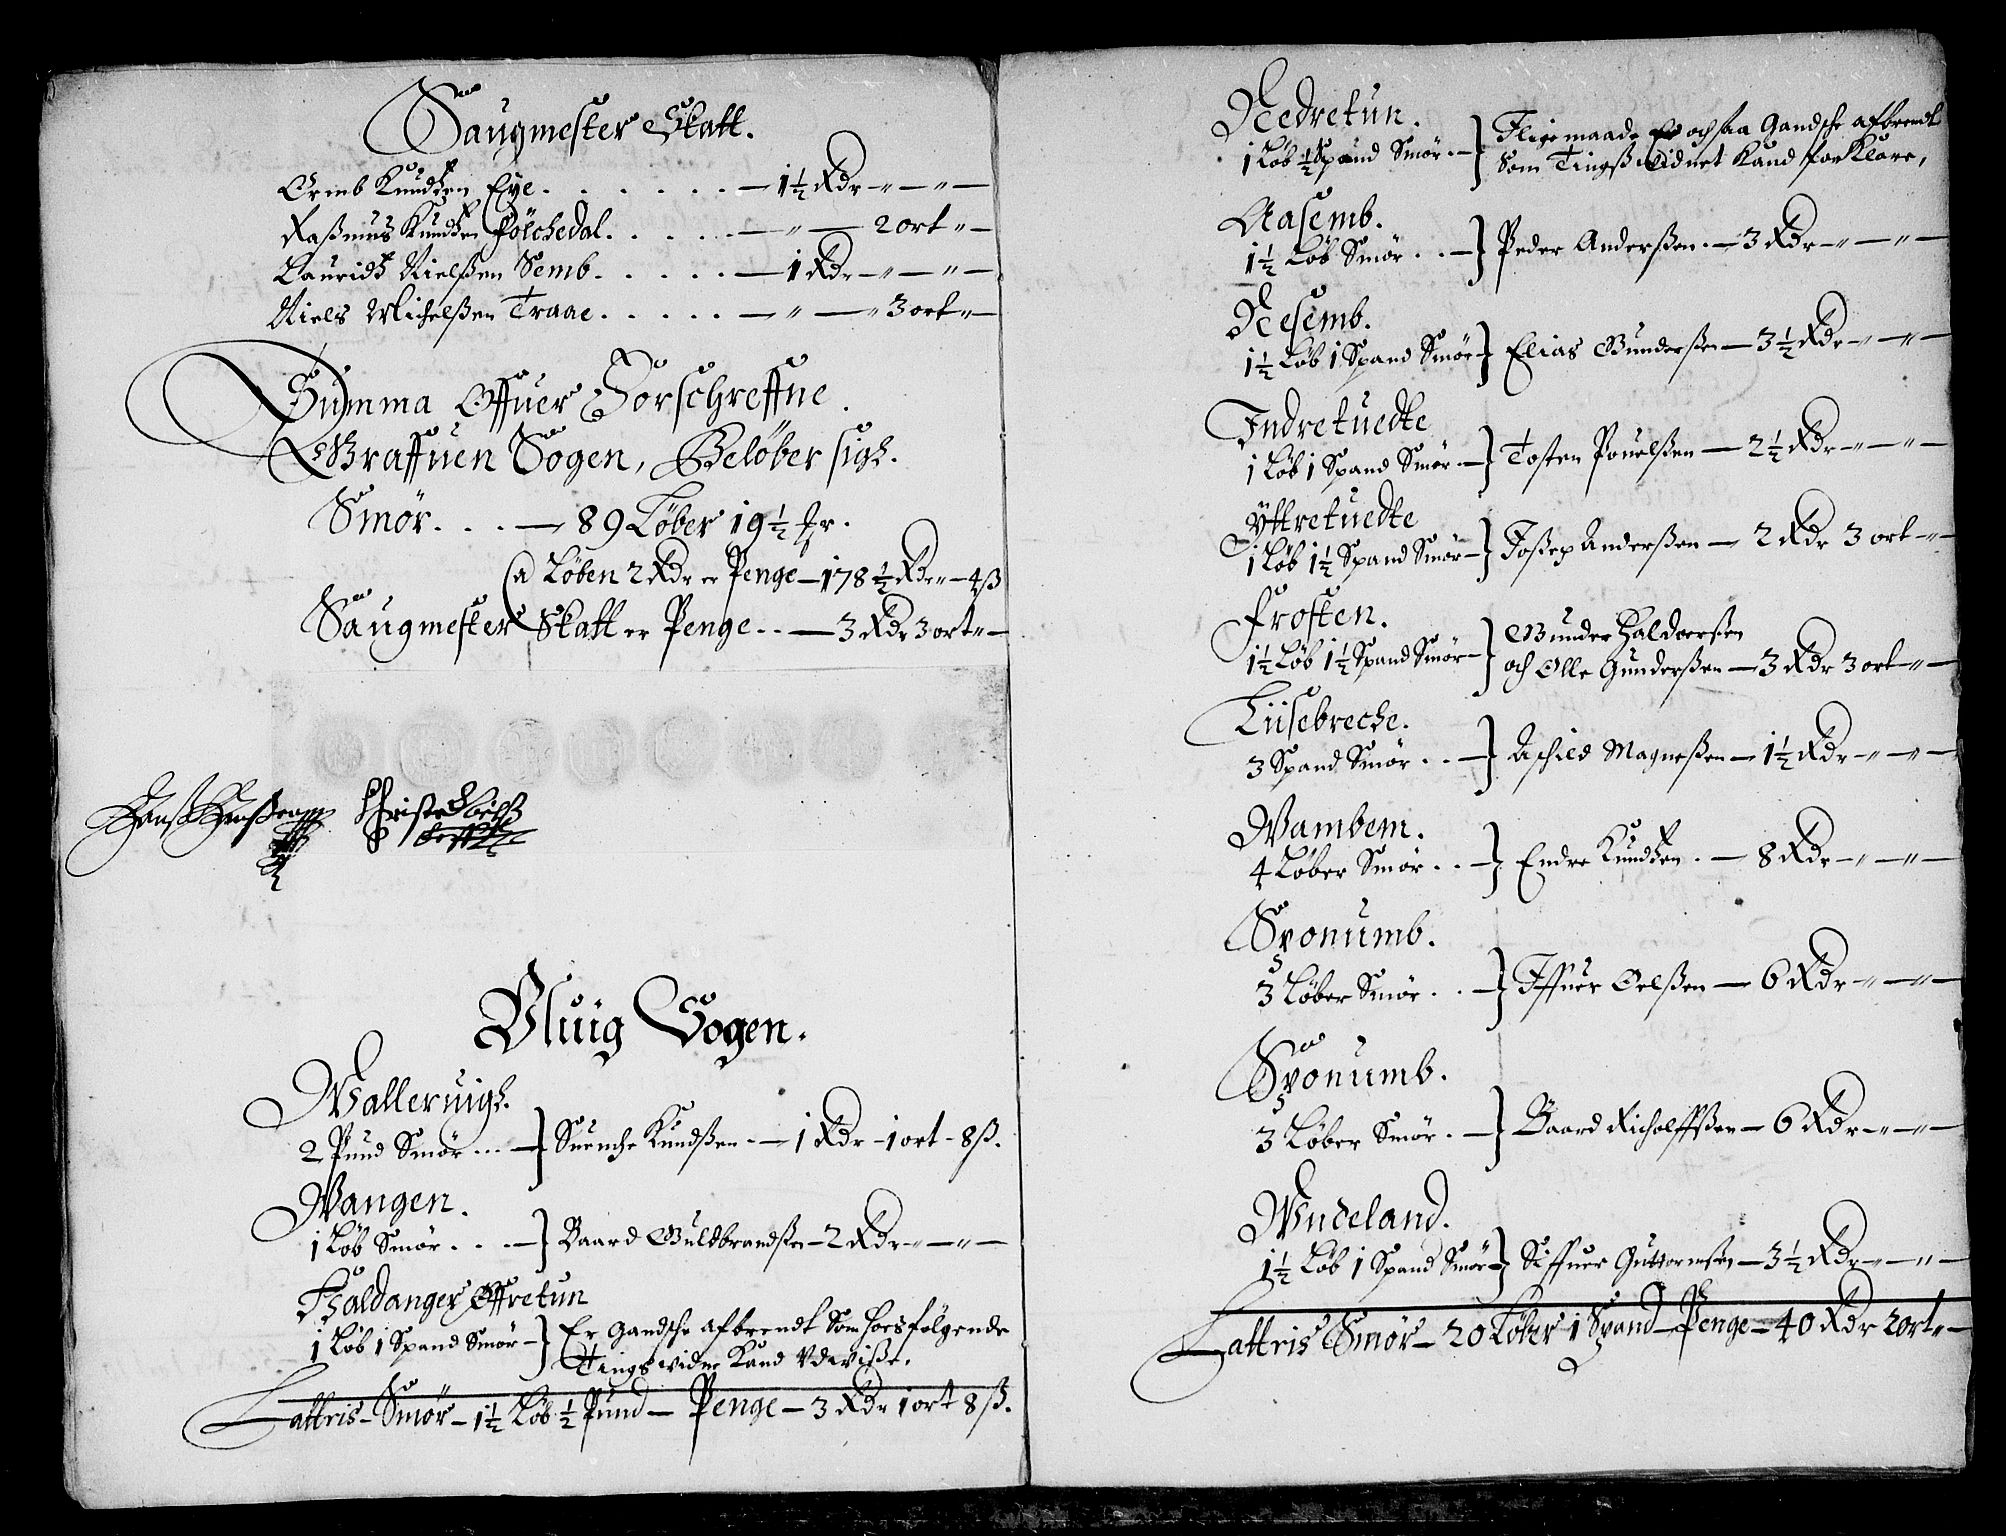 Saugmester Skatt.
Ormb Knudtzen Eye. . . . . . — 1½ Rdr — " — " —
Rasmus Knudtzen Følchedal. . . . . . — " — 2 ort " —
Lauridtz Nielsßen Semb. . . . . — 1 Rdr — " — " —
Niels Michelßen Traae. . . . . . — " — " 3 ort " —
Summa Offuer Forschreffne
Graffuen Sogen, Beløber sigh.
Smør. . . . — 89 Løber 19½
a Løben 2 Rdr er Penge — 178½ Rdr " — 4 ß
Saugmester Skatt er Penge . . — 3 Rdr 3 ort " —
Hanß Hanßen
Vluig Sogen.
Walleruigh.
2 Pund Smør . . . — } Suenche Knudßen. — 1 Rdr — 1 ort - 8 ß.
Wangen.
1 Løb Smør. . . . — } Baard Guldbrandßen — 2 Rdr — " — " —
Haldanger Offretun
1 Løb 1 Spand Smør — } Er Gandsche afbrendt Som hoesfølgende
Tingsvidne Kand Vdeviße.
Lattris — Smør — 1½ Løb ½ Pund — Penge — 3 Rdr 1 ort 8 ß.
Nedretun.
1 Løb ½ Spand Smør. — } Iligemaade Er och saa Gandsche afbrendt
Som Tingsß Vidnet Kand forKlare,
Aasemb.
1½ Løb Smør . . — } Peder Anderßen. — 3 Rdr — " — " —
Nesemb.
1½ Løb 1 Spand Smør } Elias Gunderßen — 3½ Rdr — " — " —
Indretuedte
1 Løb 1 Spand Smør. — } Tosten Pouelßen — 2½ Rdr — " — " —
Yttretuedte
1 Løb 1½ Spand Smør — } Joßep Anderßen — 2 Rdr 3 ort — " —
Frosten.
1½ Løb 1½ Spand Smør — } Gunder Haldoerßen
och Olle Gunderßen — 3 Rdr 3 ort — " —
Liisebreche.
3 Spand Smør . . — } Aschild Magneßen — 1½ Rdr — " — " —
Wambem.
4 Løber Smør . . — } Endre Knudtzen . — 8 Rdr — " — " —
Sponumb.
3 Løber Smør . . — } Iffuer Oelßen — 6 Rdr — " — " —
Sponumb.
3 Løber Smør . — } Baard Richolffßen — 6 Rdr — " — " —
Wndeland.
1½ Løb 1 Spand Smør } Siffuer Guttormßen — 3½ Rdr — " — " —
Lattris Smør — 20 Løber 1 Spand — Penge — 40 Rdr 2 ort " —